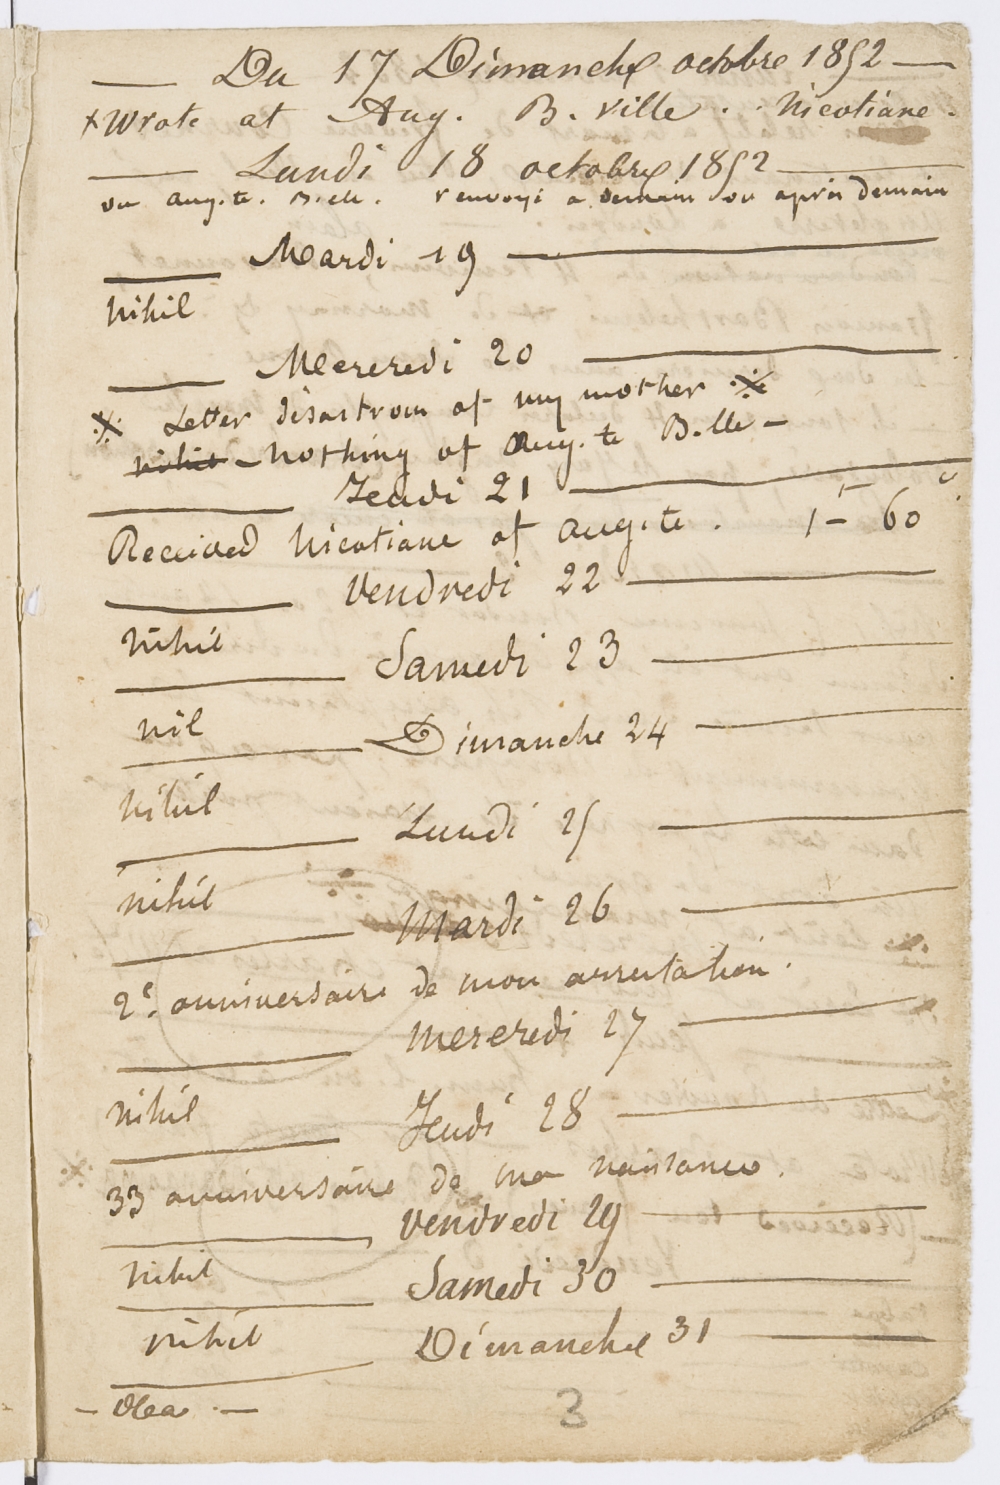 — Du 17 Dimanche octobre 1852 —
+ Wrote at Aug. B. ville . . Nicotiane .
— Lundi 18 octobre 1852 —
vu aug.te. B.elle. renvoyé a demain ou après demain
— Mardi 19 —
nihil
— Mercredi 20 —
※ Letter disastrous of my mother ※
nihil - Nothing of Aug.te B.lle -
— Jeudi 21 —
Received Nicotiane of aug.te . 1 f - 60 c.
— Vendredi 22 —
nihil
— Samedi 23 —
nil
— Dimanche 24 —
nihil
— Lundi 25 —
nihil
— Mardi 26 —
2e. anniversaire de mon arrestation .
— Mercredi 27 —
nihil
— Jeudi 28 —
33 anniversaire de ma naissance .
— Vendredi 29 —
nihil
— Samedi 30 —
nihil
— Dimanche 31 —
3